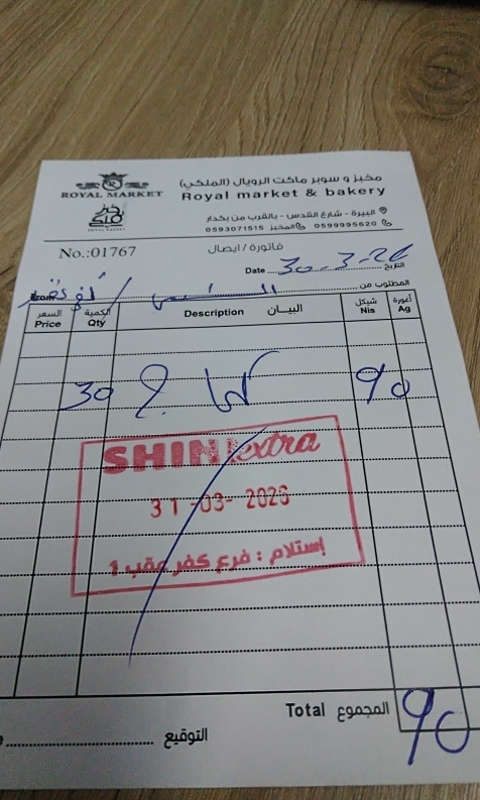 ROYAL MARKET
مخبز و سوبر ماركت الرويال (الملكي)
Royal market & bakery
البيرة - شارع القدس - بالقرب من بكدار
0599995620 المخبز 0593071515
فاتورة / ايصال
No.:01767
Date 30-3-26 التاريخ
المطلوب من
From
السعر الكمية البيان شيكل أغورة
Price Qty Description Nis Ag
30 90
SHINI extra
31-03-2026
إستلام : فرع كفر عقب 1
Total المجموع 90
التوقيع